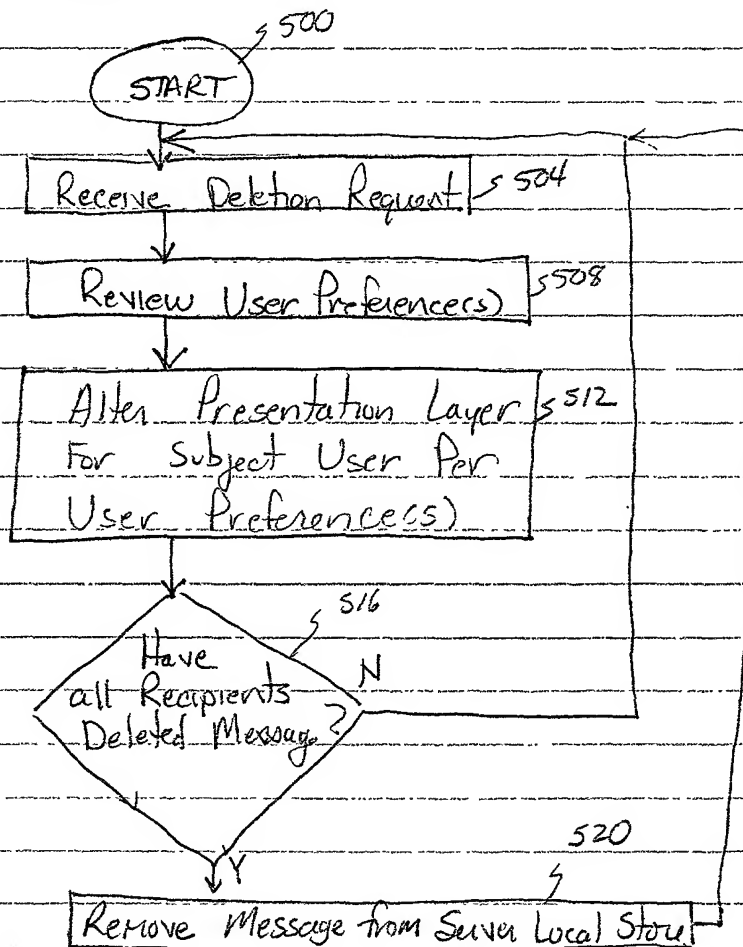 500
START
Receive Deletion Request
504
Review User Preference(s)
508
Alter Presentation Layer
For Subject User Per
User Preference(s)
512
516
Have
all Recipients
Deleted Message?
N
Y
520
Remove Message from Server Local Store